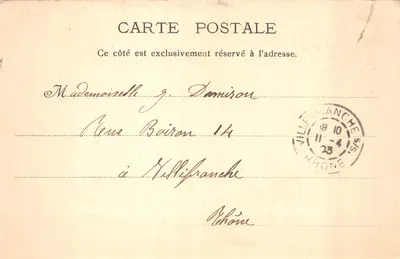 CARTE POSTALE
Ce côté est exclusivement réservé à l'adresse.
Mademoiselle J. Damiron
Rue Boiron 14
à Villefranche
Rhône
VILLEFRANCHE S/S
19 10
11 -4
03
RHÔNE